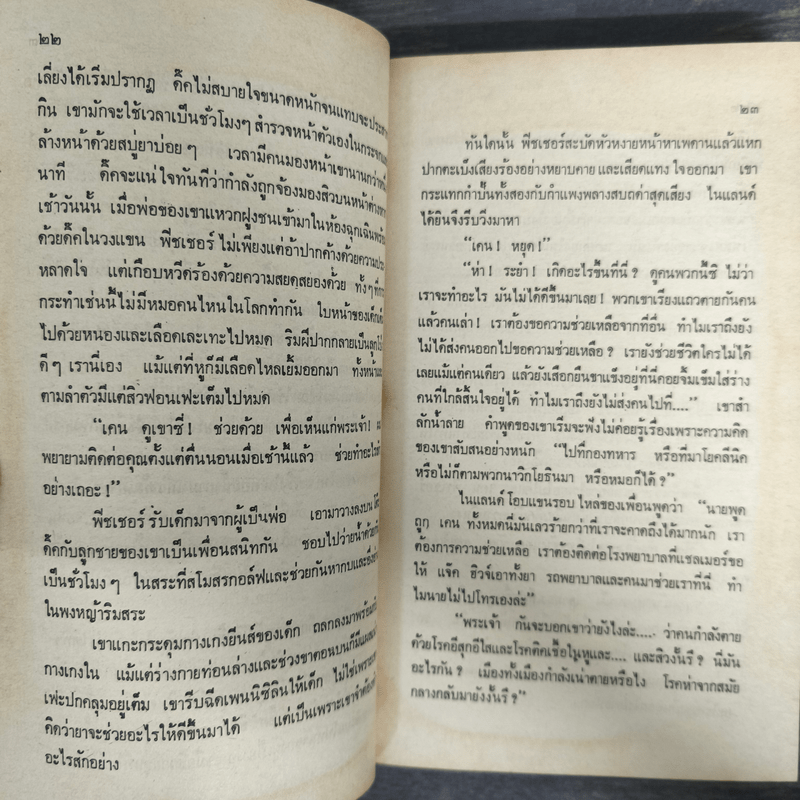 ๒๒
เลี่ยงได้เริ่มปรากฏ ดิ๊คไม่สบายใจขนาดหนักจนแทบจะ
กิน เขามักจะใช้เวลาเป็นชั่วโมงๆ สำรวจหน้าตัวเองในกระจก
ล้างหน้าด้วยสบู่ยาบ่อยๆ เวลามีคนมองหน้าเขานานกว่า
นาที ดิ๊คจะแน่ใจทันทีว่ากำลังถูกจ้องมองสิวบนหน้า
เช้าวันนั้น เมื่อพ่อของเขาแหวกฝูงชนเข้ามาในห้องฉุกเฉิน
ด้วยดิ๊คในวงแขน พีชเชอร์ไม่เพียงแต่อ้าปากค้างด้วยความ
หลาดใจ แต่เกือบหวีดร้องด้วยความสยดสยองด้วย ทั้งๆ ที่การ
กระทำเช่นนี้ไม่มีหมอคนไหนในโลกทำกัน ใบหน้าของเด็ก
ไปด้วยหนองและเลือดเละเทะไปหมด ริมฝีปากกลายเป็น
ดีๆ เรานี่เอง แม้แต่ที่หูก็มีเลือดไหลเยิ้มออกมา ทั้งหน้า
ตามลำตัวมีแต่สิวฟอนเฟะเต็มไปหมด
“เคน ดูเขาซี่! ช่วยด้วย เพื่อเห็นแก่พระเจ้า!
พยายามติดต่อคุณตั้งแต่ตื่นนอนเมื่อเช้านี้แล้ว ช่วยทำอะไร
อย่างเถอะ!”
พีชเชอร์รับเด็กมาจากผู้เป็นพ่อ เอามาวางลงบน
ดิ๊คกับลูกชายของเขาเป็นเพื่อนสนิทกัน ชอบไปว่ายน้ำด้วยกัน
เป็นชั่วโมงๆ ในสระที่สโมสรกอล์ฟและช่วยกันหากบและอึ่ง
ในพงหญ้าริมสระ
เขาแกะกระดุมกางเกงยีนส์ของเด็ก ถลกลงมาพร้อม
กางเกงใน แม้แต่ร่างกายท่อนล่างและช่วงขาตอนบนก็มี
เฟะปกคลุมอยู่เต็ม เขารีบฉีดเพนนิซิลินให้เด็ก ไม่ใช่เพราะ
คิดว่ายาจะช่วยอะไรให้ดีขึ้นมาได้ แต่เป็นเพราะเขาจำต้อง
อะไรสักอย่าง
๒๓
ทันใดนั้น พีชเชอร์สะบัดหัวหงายหน้าหาเพดานแล้วแหก
ปากตะเบ็งเสียงร้องอย่างหยาบคาย และเสียดแทงใจออกมา เขา
กระแทกกำปั้นทั้งสองกับกำแพงพลางสบถด่าสุดเสียง ไนแลนด์
ได้ยินจึงรีบวิ่งมาหา
“เคน! หยุด!”
“ห่า! ระยำ! เกิดอะไรขึ้นที่นี่? ดูคนพวกนี้ซิ ไม่ว่า
เราจะทำอะไร มันไม่ได้ดีขึ้นมาเลย! พวกเขาเรียงแถวตายกันคน
แล้วคนเล่า! เราต้องขอความช่วยเหลือจากที่อื่น ทำไมเราถึงยัง
ไม่ได้ส่งคนออกไปขอความช่วยเหลือ? เรายังช่วยชีวิตใครไม่ได้
เลยแม้แต่คนเดียว แล้วยังเสือกยืนขาแข็งอยู่ที่นี่คอยจิ้มเข็มใส่ร่าง
คนที่ใกล้สิ้นใจอยู่ได้ ทำไมเราถึงยังไม่ส่งคนไปที่....” เขาสำ
ลักน้ำลาย คำพูดของเขาเริ่มจะฟังไม่ค่อยรู้เรื่องเพราะความคิด
ของเขาสับสนอย่างหนัก “ไปที่กองทหาร หรือที่มาโยคลีนิค
หรือไม่ก็ตามพวกนาวิกโยธินมา หรือหมอก็ได้?”
ไนแลนด์โอบแขนรอบไหล่ของเพื่อนพูดว่า “นายพูด
ถูก เคน ทั้งหมดนี่มันเลวร้ายกว่าที่เราจะคาดถึงได้มากนัก เรา
ต้องการความช่วยเหลือ เราต้องติดต่อโรงพยาบาลที่แชลเมอร์ขอ
ให้ แจ็ค ฮิวจ์เอาทั้งยา รถพยาบาลและคนมาช่วยเราที่นี่ ทำ
ไมนายไม่ไปโทรเองล่ะ”
“พระเจ้า กันจะบอกเขาว่ายังไงล่ะ.... ว่าคนกำลังตาย
ด้วยโรคอีสุกอีใสและโรคติดเชื้อในหูและ.... และสิวงั้นรึ? นี่มัน
อะไรกัน? เมืองทั้งเมืองกำลังเน่าตายหรือไง โรคห่าจากสมัย
กลางกลับมายังงั้นรึ?”